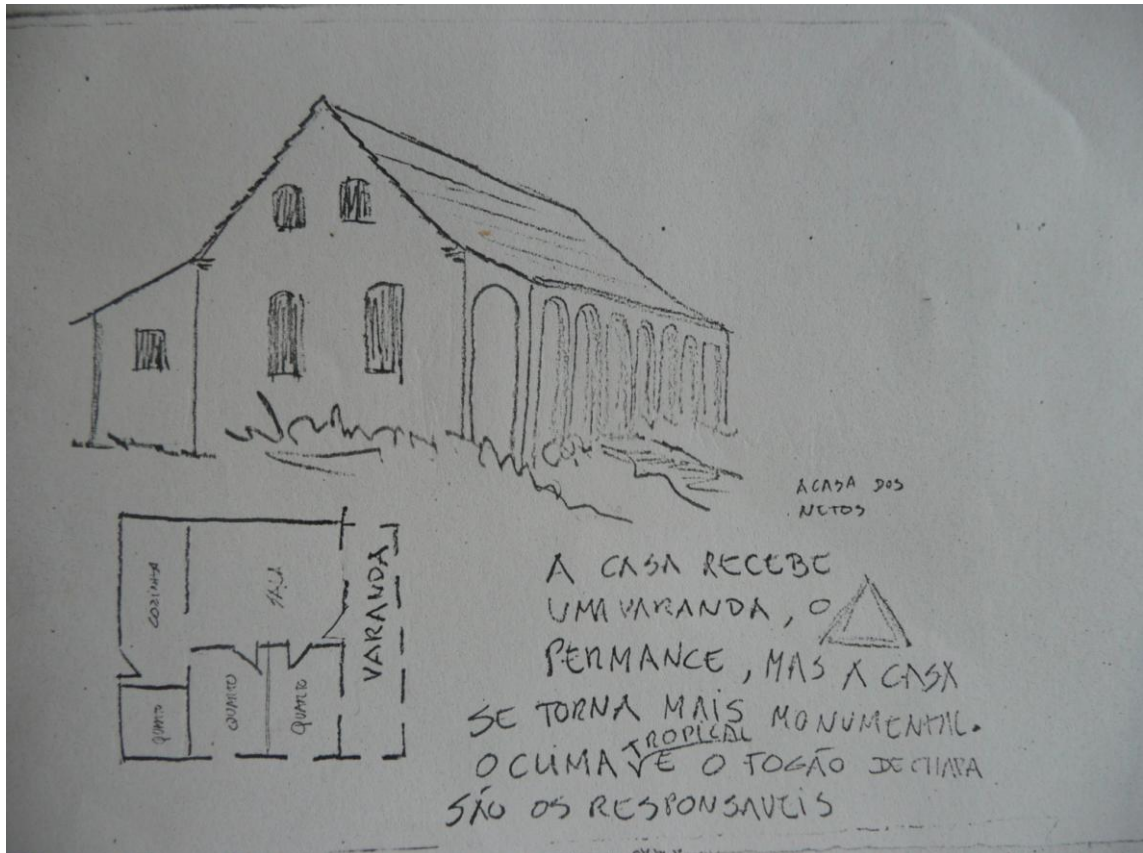 A CASA DOS
NETOS
COZINHA
SALA
VARANDA
QUARTO
QUARTO
QUARTO
A CASA RECEBE
UMA VARANDA, O
PERMANCE, MAS A CASA
SE TORNA MAIS MONUMENTAL.
O CLIMA TROPICAL E O FOGÃO DE CHAPA
SÃO OS RESPONSAVEIS